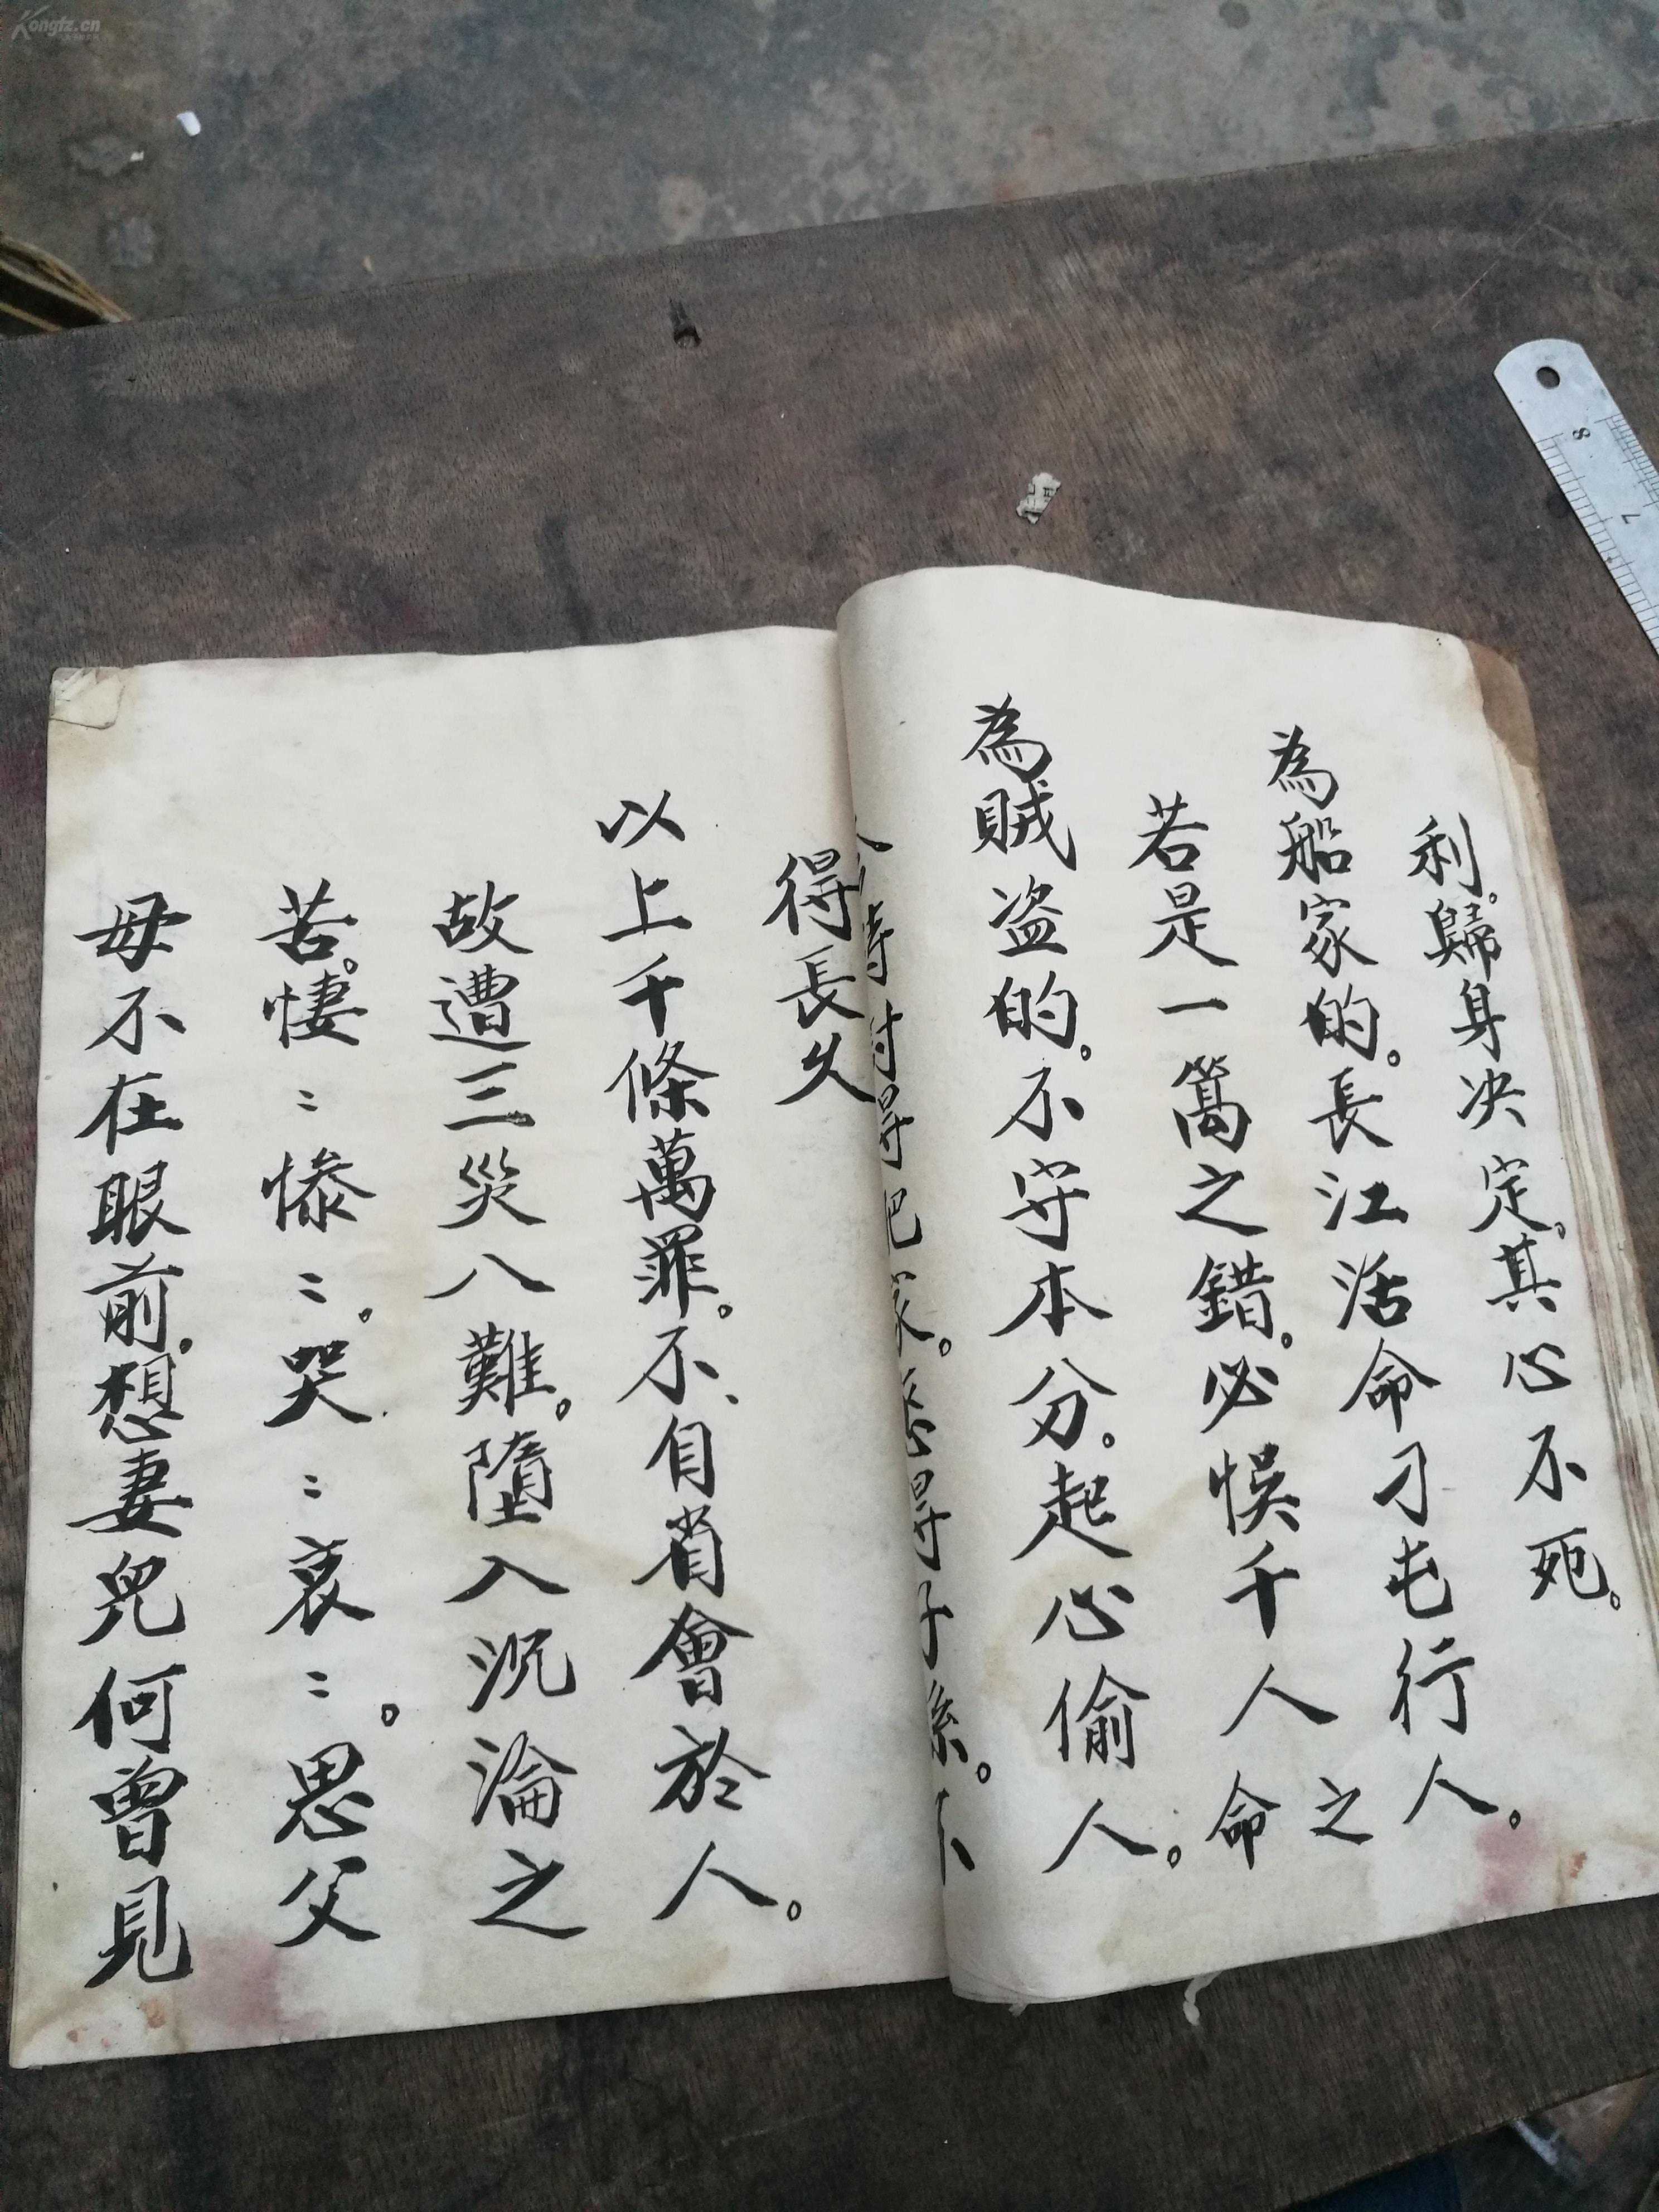 利。歸身决定。其心不死。
為船家的。長江活命刁屯行人。
若是一篙之錯。必悞千人之命
為賊盗的。不守本分。起心偷人。
得長久
以上千條萬罪。不自省會於人。
故遭三災八難。墮入沉淪之
苦。悽〻惨〻。哭〻哀〻。思父
母不在眼前。想妻兒何曾見
8
7
Kongfz.cn